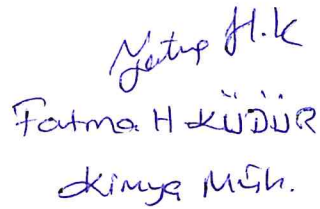 H.K
Fatma H KÜDÜR
Kimya Müh.